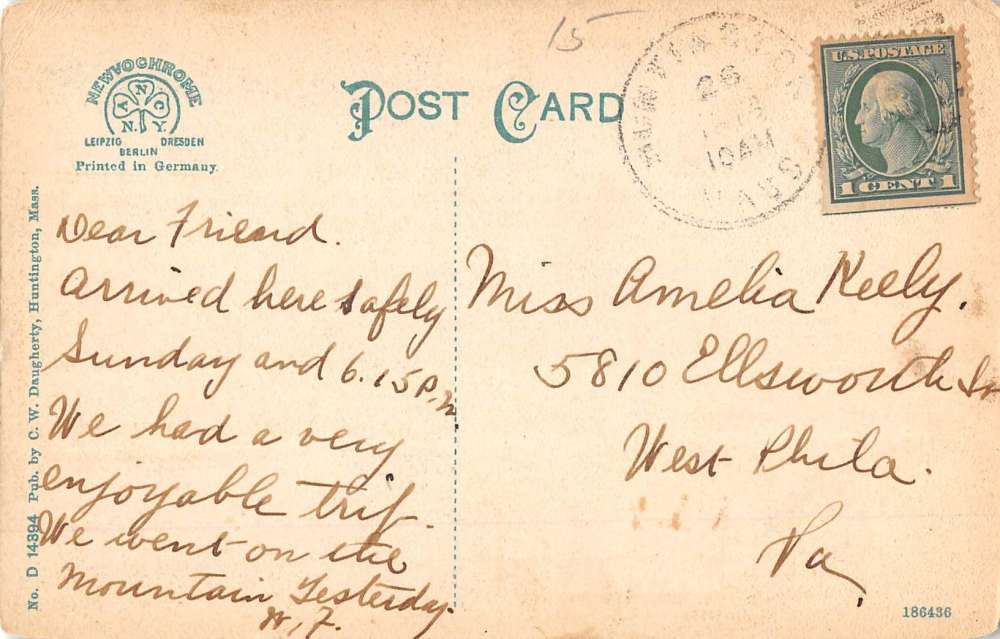 15
NEWVOCHROME
A N C
N. Y.
LEIPZIG DRESDEN
BERLIN
Printed in Germany.
POST CARD
26
10 AM
MASS
U.S. POSTAGE
1 CENT 1
No. D 14894 Pub. by C. W. Daugherty, Huntington, Mass.
Dear Friend.
Arrived here safely
Sunday and 6.15 P.M
We had a very
enjoyable trip.
We went on the
Mountain Yesterday.
Miss Amelia Keely.
5810 Ellsworth St
West Phila.
Pa,
186436